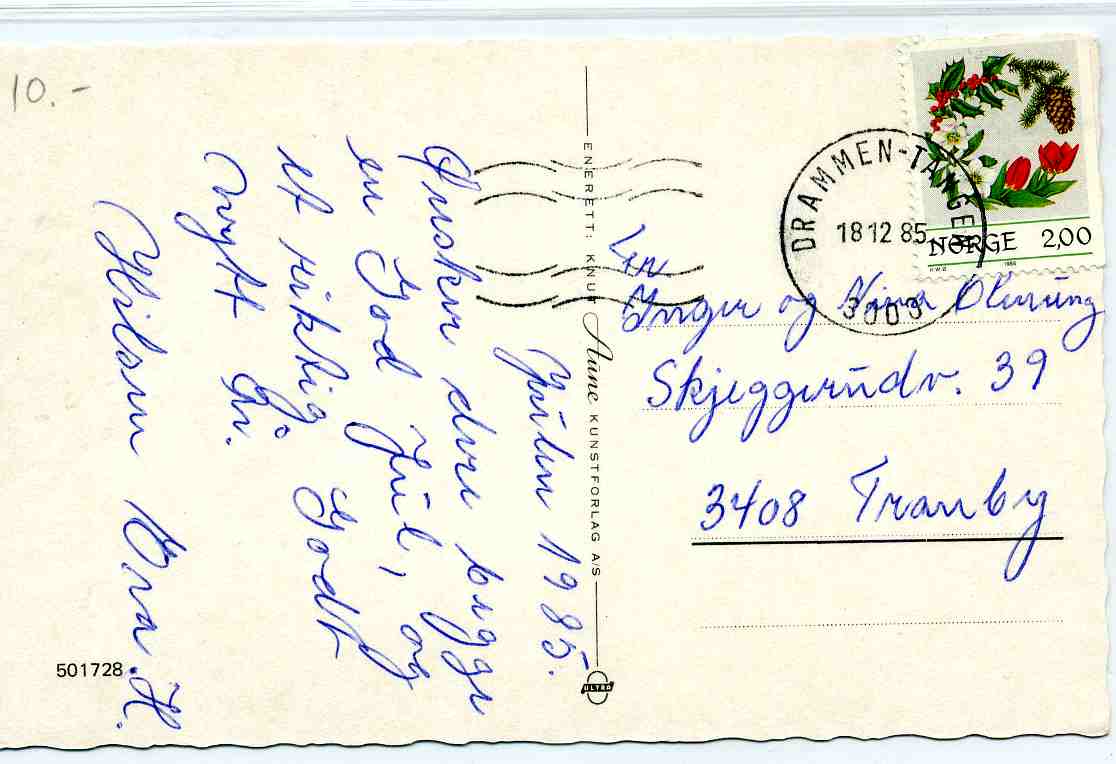 10.-
Julen 1985.
Ønsker dere begge
en God Jul, og
et riktig Godt
nytt år.
Hilsen Eva. H.
501728
ENERETT: KNUT Aune KUNSTFORLAG A/S
ULTRA
DRAMMEN-TANGEN
18 12 85
3003
NORGE 2,00
Inger og Nina
Skjeggerudv. 39
3408 Tranby